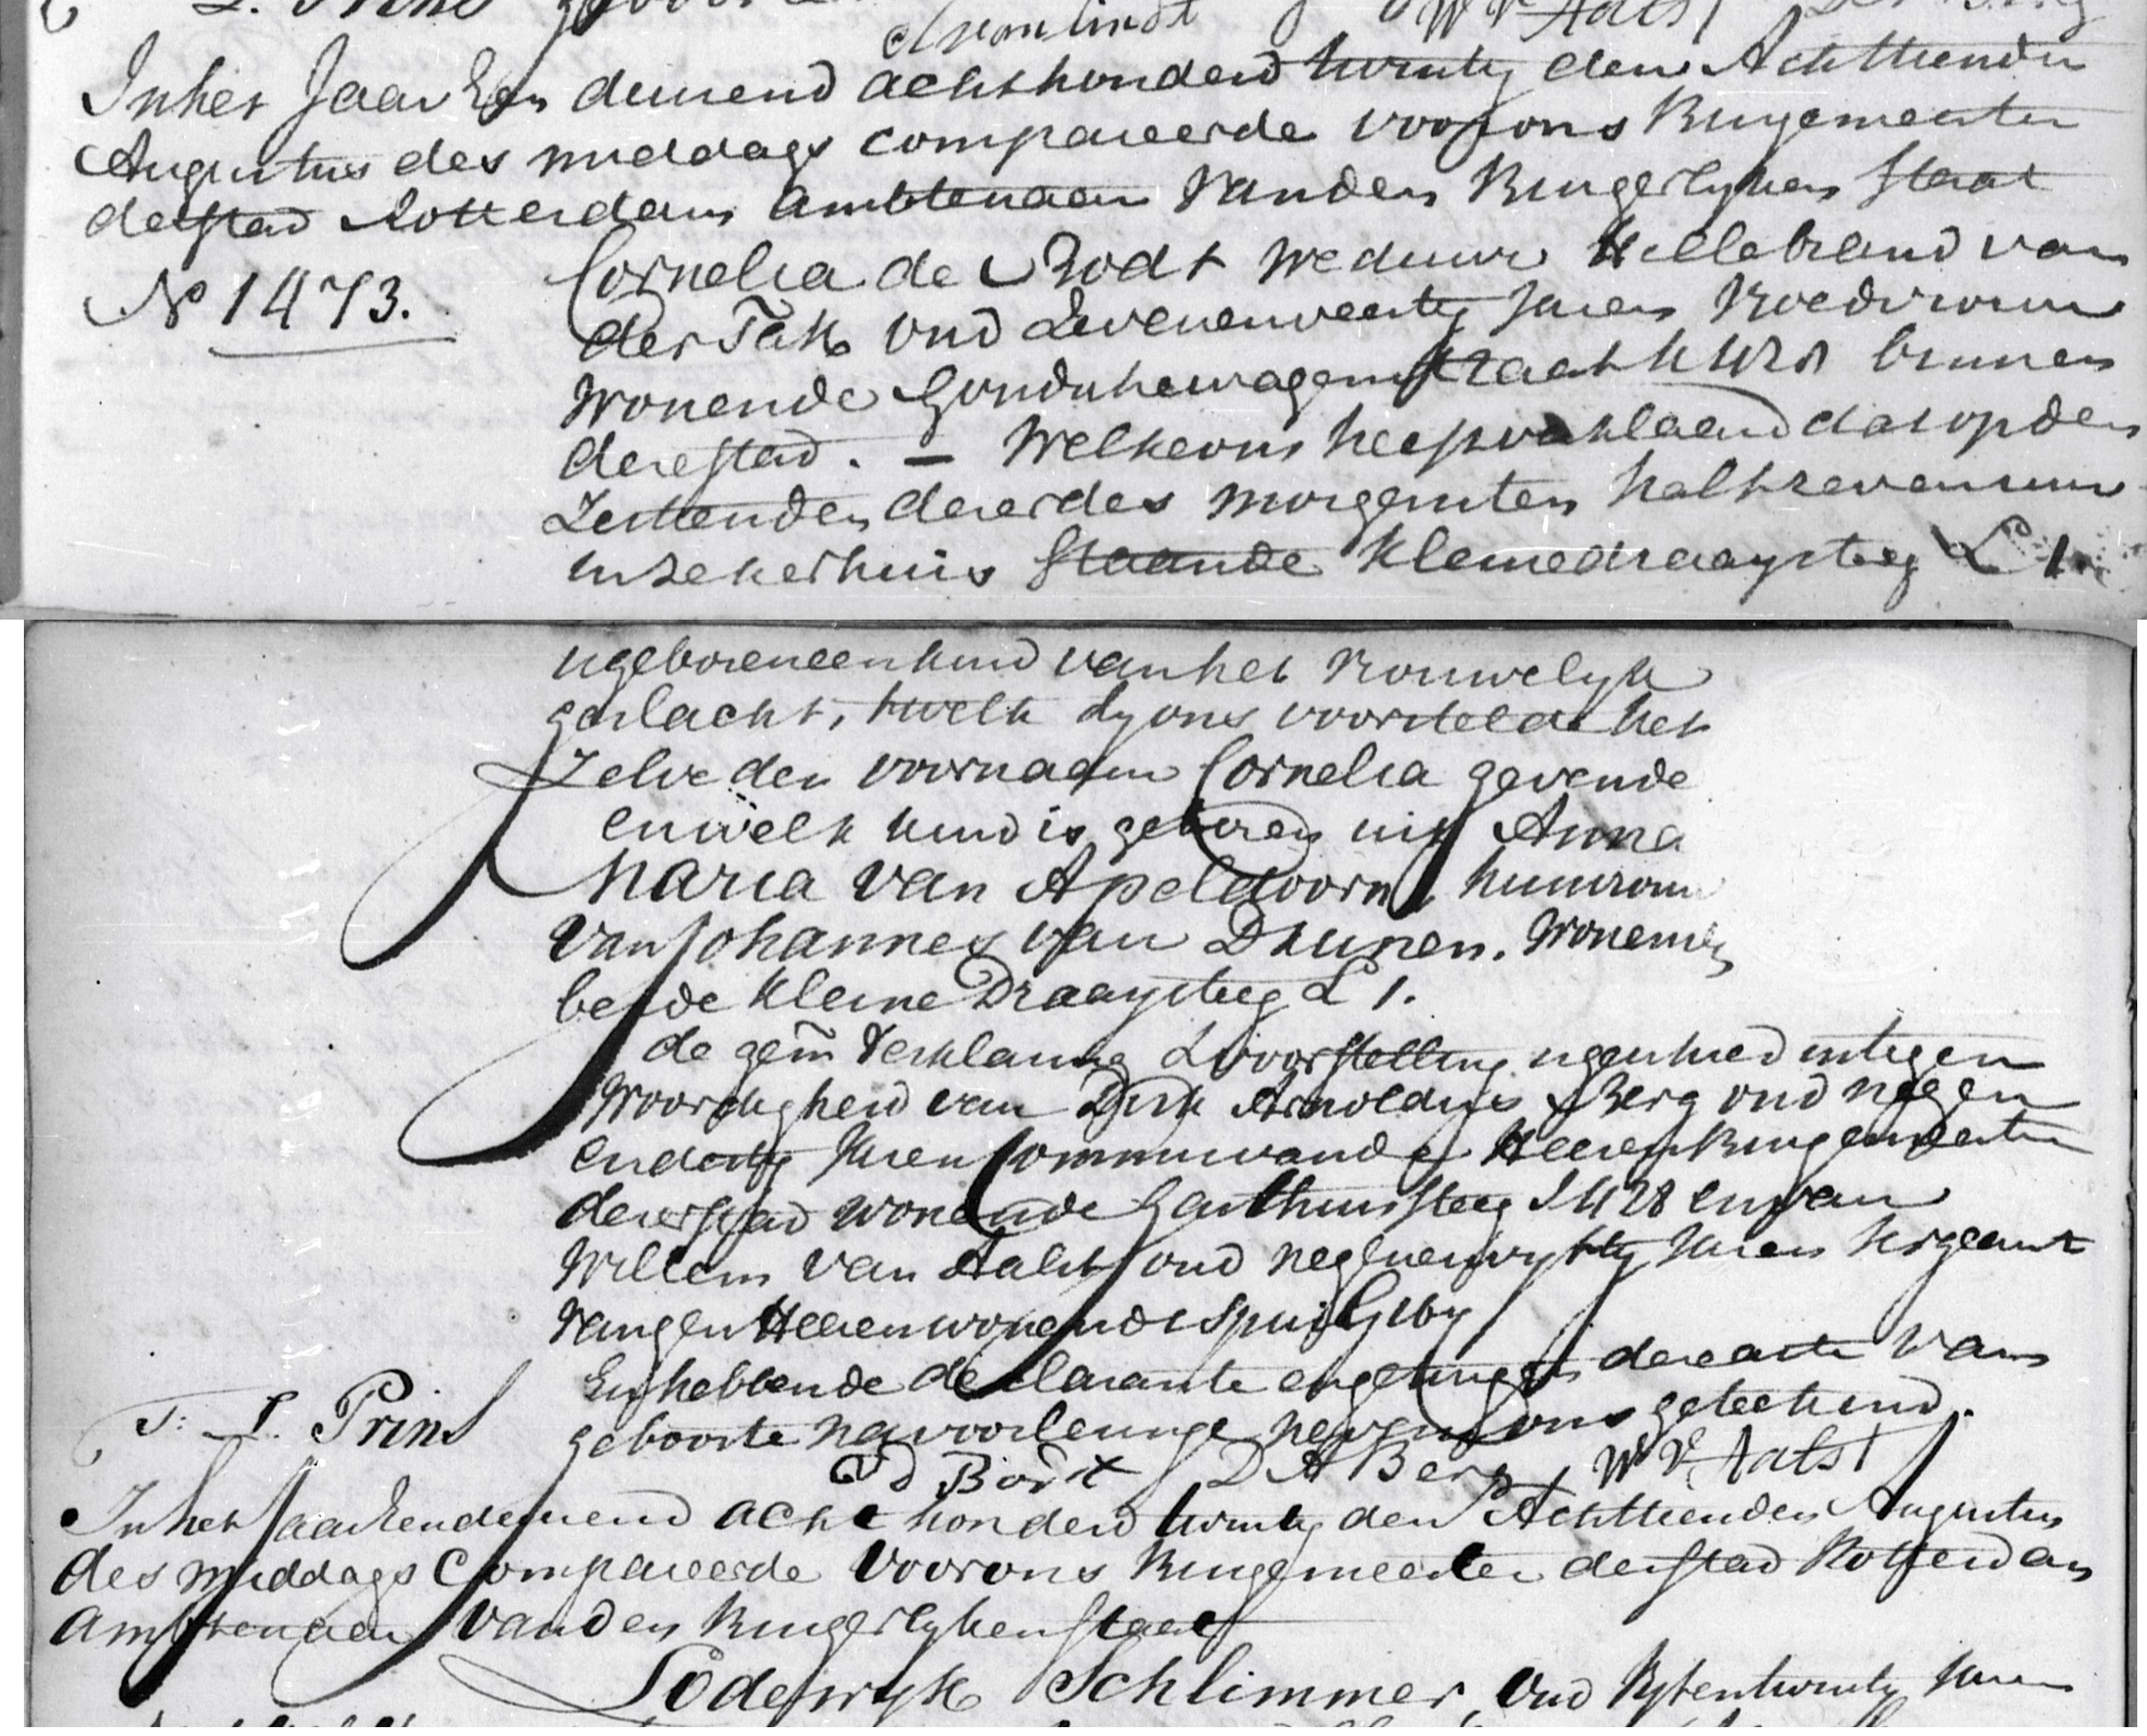 W V Aalst
In het Jaar Een duisend achthonderd twintig den Achttienden
Augustus des middags compareerde voor ons Burgemeester
der stad Rotterdam Ambtenaar van den Burgerlyken Staat
N° 1473.
Cornelia de Bodt Weduwe Hillebrand van
der Tak oud Zevenenveertig Jaren Vroedvrouw
Wonende Goudschewagenstraat K 1251 binnen
dese stad. — Welke ons heeft verklaard dat op den
Zestienden deser des morgens ten half zeven uure
in zeker huis staande kleine draaysteeg L 1
is geboren een kind van het Vrouwelyk
geslacht, twelk zy ons voorstelde het
Zelve den voornaam Cornelia gevende
en welk kind is geboren uit Anna
Maria van Apeldoorn, huisvrouw
van Johannes van Drunen. Wonende
beide Kleine Draaysteeg L 1.
de gem̃ Verklaring & voorstelling is geschied in tegen
Woordigheid van Dirk Arnoldus Berg oud negen
en dertig Jaren Commies van de Heeren Burgemeesteren
deser stad wonende Gasthuissteeg I 428 en van
Willem van Aalst oud negenenvyftig Jaren sergeant
van gem Heeren wonende Spui G 169
En hebben de declarante en getuigen dese acte van
geboorte na voorlesinge nevens ons geteekend.
T: L. Prins
C d Bodt D A Berg W V Aalst
In het Jaar Een duisend acht honderd twintig den Achttienden Augustus
des middags Compareerde Voor ons Burgemeester der stad Rotterdam
Ambtenaar van den Burgerlyken Staat
Lodewyk Schlimmer, Oud Vyfentwintig Jaren